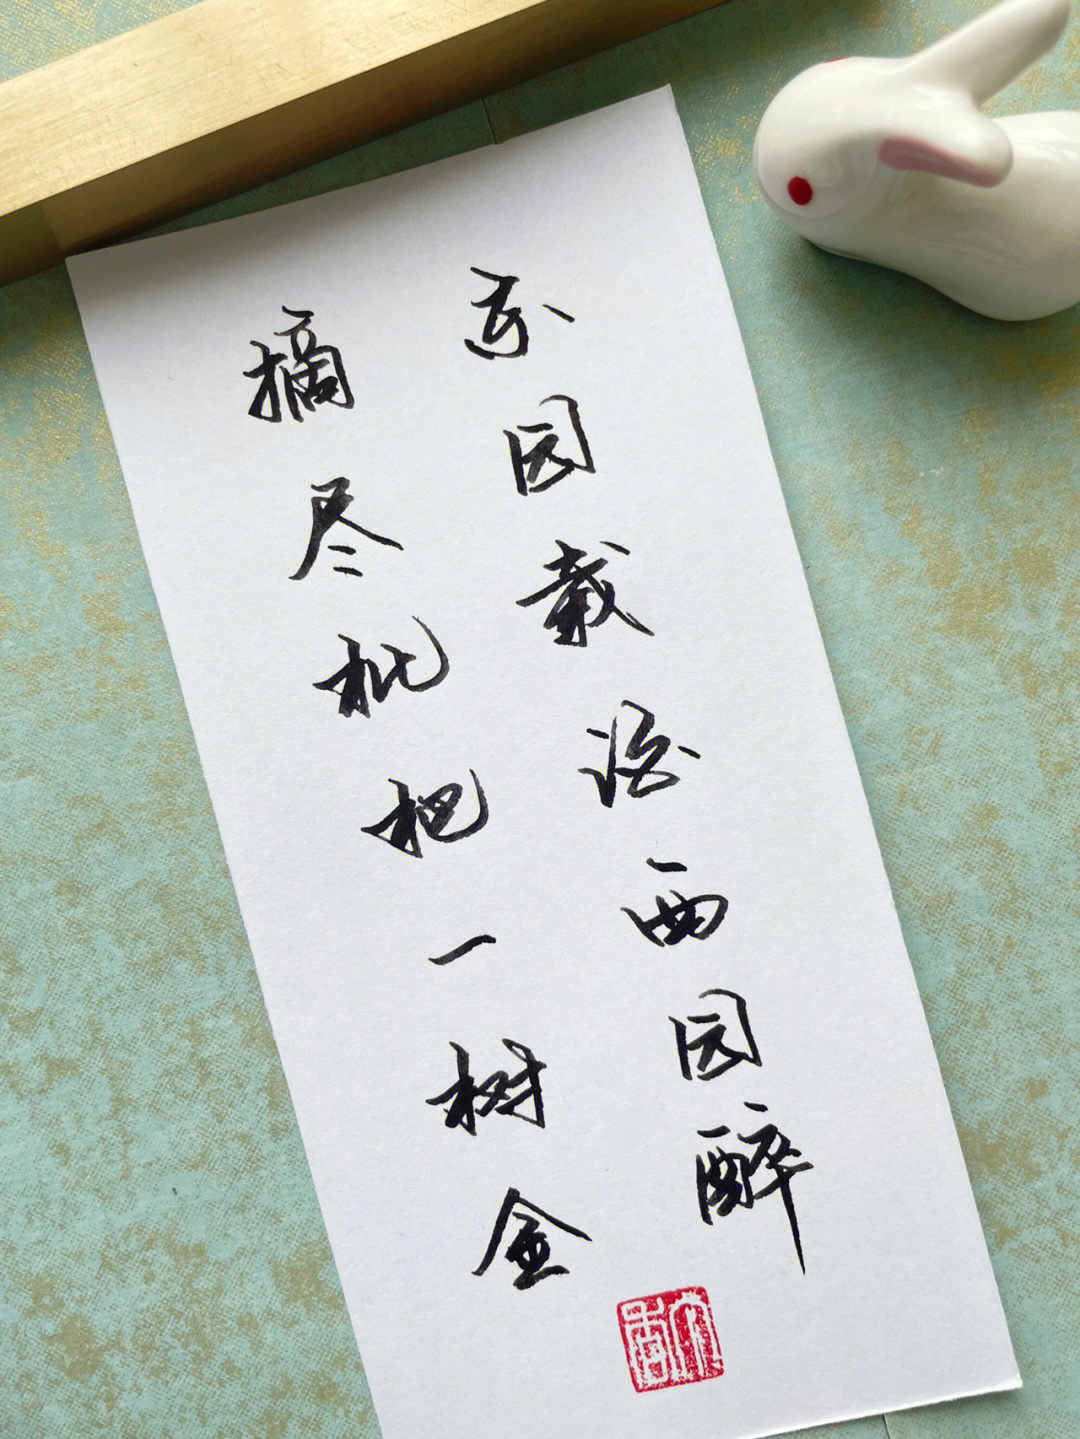 东园载酒西园醉
摘尽枇杷一树金